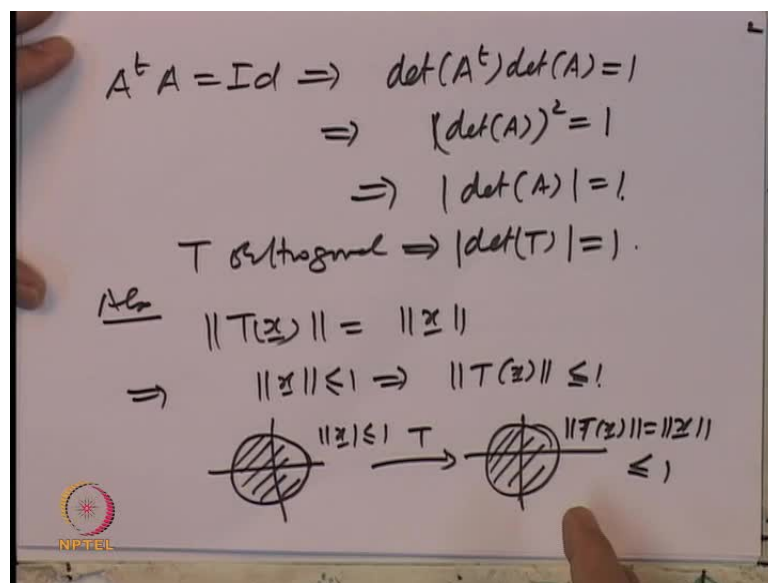 A^t A = Id ⇒ det(A^t) det(A) = 1
⇒ (det(A))^2 = 1
⇒ |det(A)| = 1.
T orthogonal ⇒ |det(T)| = 1.
Also
||T(x)|| = ||x||
⇒ ||x|| ≤ 1 ⇒ ||T(x)|| ≤ 1.
||x|| ≤ 1 T ||T(x)|| = ||x||
≤ 1
NPTEL